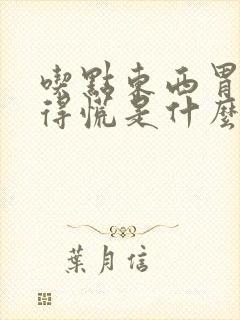 喫點東西胃
得慌是什麼
葉月信